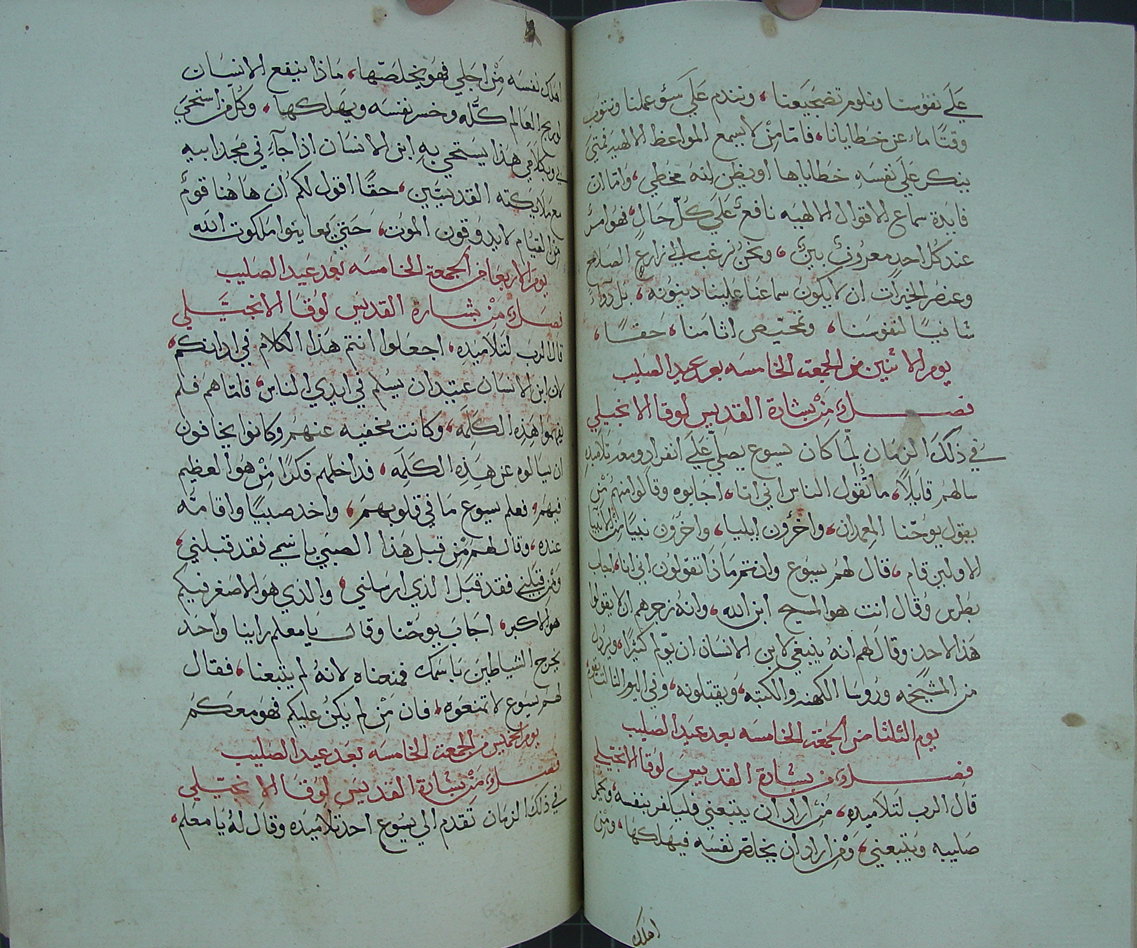 علي نفوسنا ونلوم تضجيعنا، ونندم علي سؤ عملنا ونتوب
وقتًا ما، عن خطايانا، فاما من لا يسمع المواعظ الالهيه فمتي
يتكر علي نفسه خطاياها او يظن انه مخطي، واما ان
فايدة سماع الاقوال الالهيه نافع علي كل حال، فهو امر
عند كل احد معروف بين، ونحن نرغب الي زارع الصلاح
وعنصر الخيرات ان لا يكون سماعنا علينا دينونه، بل دواء
شافيا لنفوسنا، وتمحيص اثامنا، حقا،
يوم الاثنين من الجمعه الخامسه بعد عيد الصليب
فصل من بشارة القديس لوقا الانجيلي
في ذلك الزمان لما كان يسوع يصلي علي انفراد ومعه تلاميذه
سالهم قايلا، ما تقول الناس اني انا، اجابوه وقالوا منهم من
يقول يوحنا المعمدان، واخرون ايليا، واخرون نبيا من الانبيا
الاولين قام، قال لهم يسوع وانتم ماذا تقولون اني انا، اجاب
بطرس وقال انت هو المسيح ابن الله، وانه زجرهم ان لا يقولوا
هذا لاحد وقال لهم انه ينبغي لابن الانسان ان يولم كثيرا، ويرذل
من المشيخه وروسا الكهنه والكتبه، ويقتلونه، وفي اليوم الثالث يقوم
يوم الثلثا من الجمعه الخامسه بعد عيد الصليب
فصل من بشارة القديس لوقا الانجيلي
قال الرب لتلاميذه، من اراد ان يتبعني فليكفر بنفسه، ويحمل
صليبه ويتبعني، ومن اراد ان يخلص نفسه فيهلكها، ومن
اهلك
اهلك نفسه من اجلي فهو يخلصها، ماذا ينفع الانسان
لو ربح العالم كله وخسر نفسه ويهلكها، وكل من استحيي
بي وبكلامي هذا يستحي به ابن الانسان اذا جآء في مجد ابيه
مع ملايكته القديسين، حقا اقول لكم ان هاهنا قوم
من القيام لا يدوقون الموت، حتي يعاينوا ملكوت الله
يوم الاربعا من الجمعه الخامسه بعد عيد الصليب
فصل من بشارة القديس لوقا الانجيلي
قال الرب لتلاميده، اجعلوا انتم هذا الكلام في ادانكم،
لان ابن الانسان عتيد ان يسلم في ايدي الناس، فاما هم فلم
يفهموا هذه الكلمه، وكانت مخفيه عنهم وكانوا يخافون
ان يسالوه عن هذه الكلمه، فداخلهم فكرا من هو العظيم
فيهم، فعلم يسوع ما في قلوبهم، واخد صبيا واقامه
عنده، وقال لهم من قبل هذا الصبي باسمي فقد قبلني،
ومن قبلني فقد قبل الذي ارسلني، والذي هو الاصغر فيكم
هو الاكبر، اجاب يوحنا وقال يا معلم راينا واحد
يخرج الشياطين باسمك فمنعناه لانه لم يتبعنا، فقال
لهم يسوع لا تمنعوه، فان من لم يكن عليكم فهو معكم
يوم الخميس من الجمعه الخامسه بعد عيد الصليب
فصل من بشارة القديس لوقا الانجيلي
في ذلك الزمان تقدم الي يسوع احد تلاميده وقال له يا معلم،